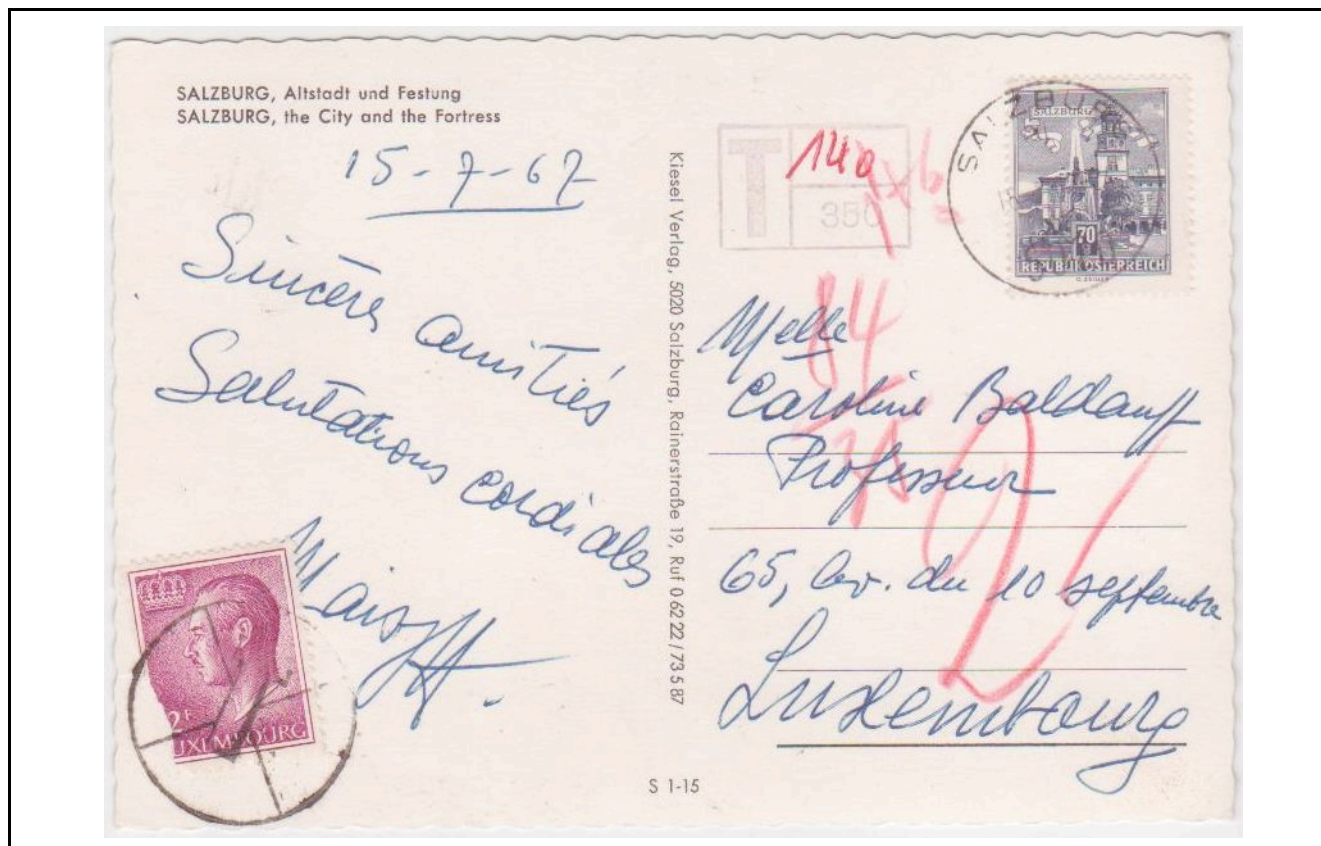 SALZBURG, Altstadt und Festung
SALZBURG, the City and the Fortress
15-7-67
Sincères amitiés
Salutations cordiales
Kiesel Verlag, 5020 Salzburg, Rainerstraße 19, Ruf 0 62 22 / 73 5 87
S 1-15
T
140
350
SALZBURG
SALZBURG
70
REPUBLIK ÖSTERREICH
84
Melle
Caroline Baldauff
Professeur
65, av. du 10 septembre
Luxembourg
2F
LUXEMBOURG
T